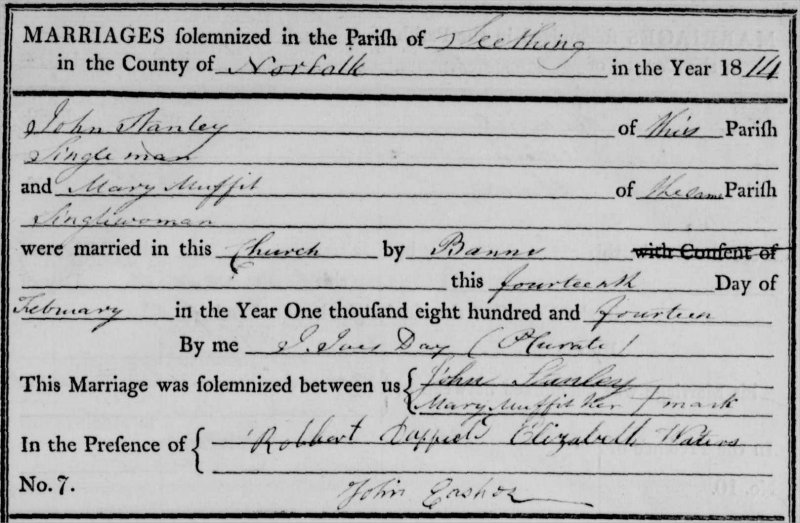 MARRIAGES ſolemnized in the Pariſh of Seething
in the County of Norfolk in the Year 1814
John Stanley of this Pariſh
Single man
and Mary Muffit of the same Pariſh
Singlewoman
were married in this Church by Banns with Conſent of
this fourteenth Day of
February in the Year One thouſand eight hundred and fourteen
By me J. Ives Day (Curate)
This Marriage was ſolemnized between us John Stanley
Mary Muffit her + mark
In the Preſence of Robbert Elizabeth Waters
No. 7. John